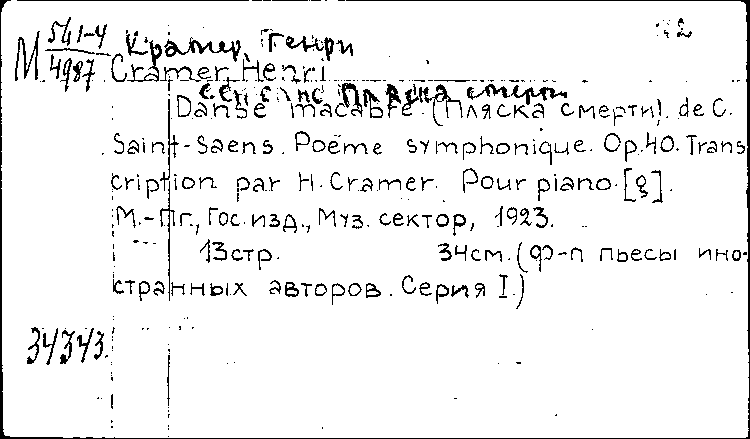 М 541-4/4987 Крамер, Генри
Cramer, Henri
Сен Санс Пляска смерти
Danse macabre. (Пляска смерти). de C.
Saint-Saens. Poëme symphonique. Op.40. Trans
cription par H. Cramer. Pour piano. [g].
М.-Пг., Гос. изд., Муз. сектор, 1923.
13стр. 34см. (Ф-п пьесы ино-
странных авторов. Серия I.)
34343.